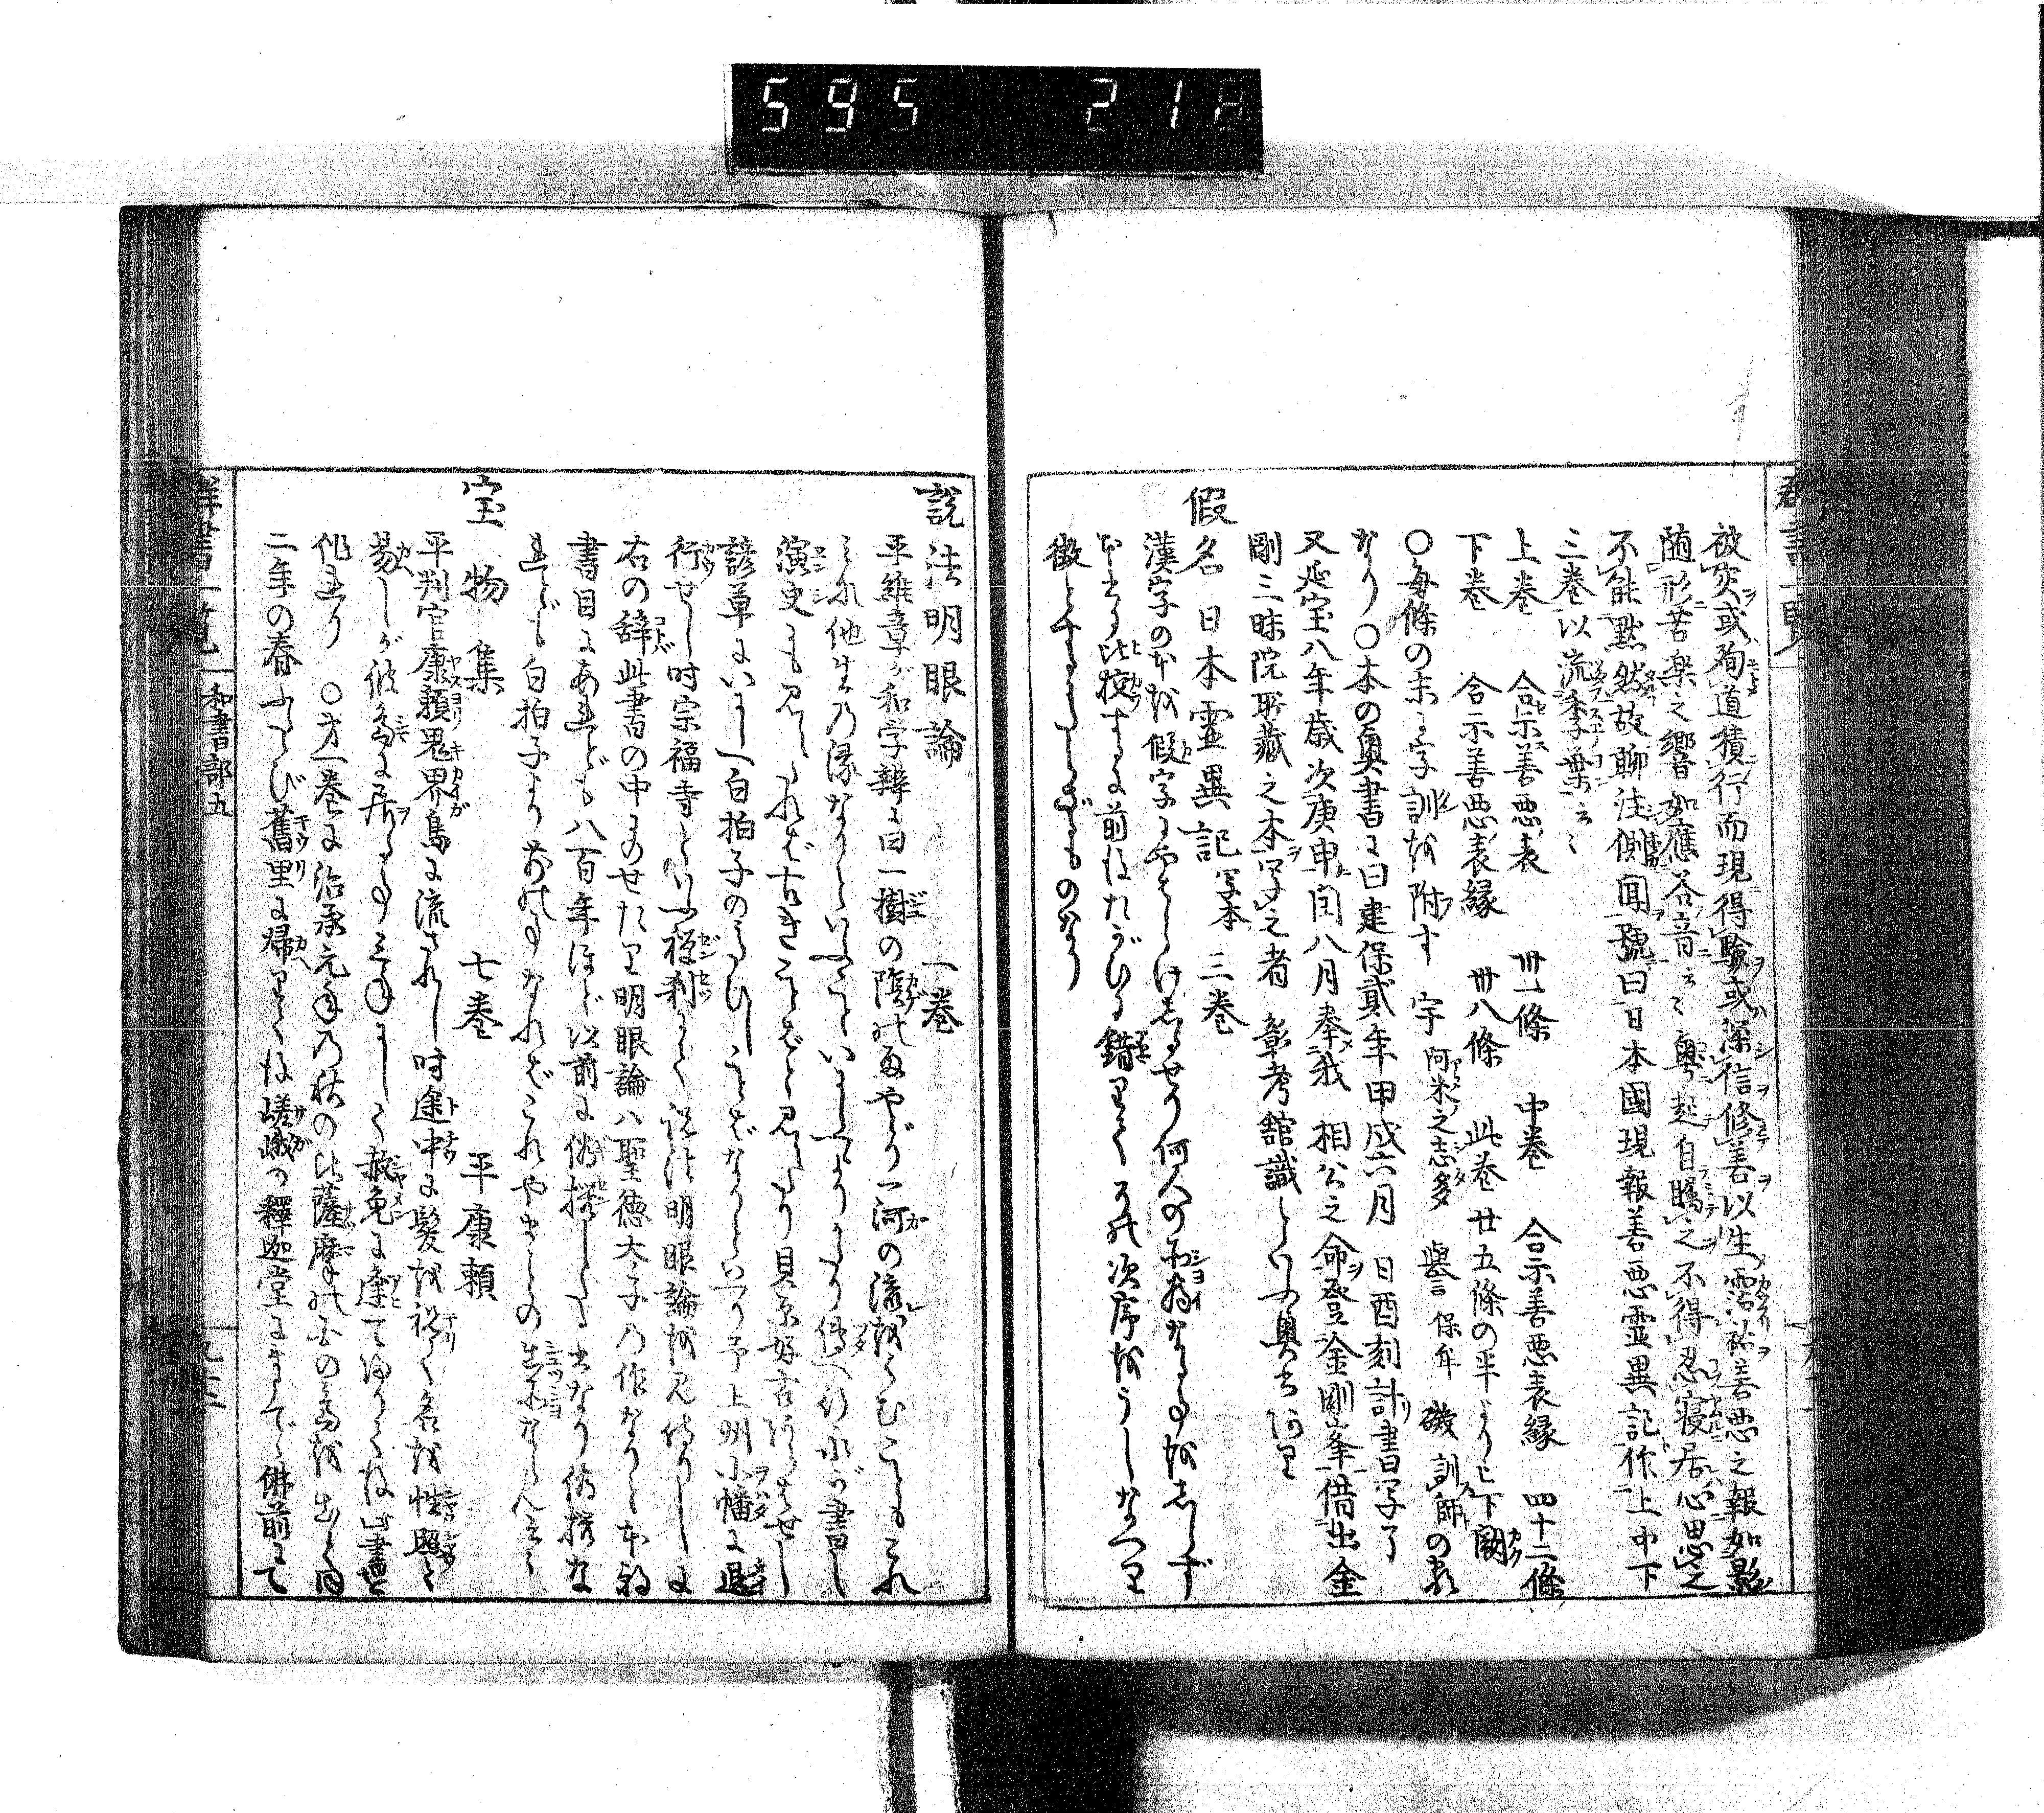 595 21
群書一覧
被灾或殉道積行而現得驗或深信修善以生霑祐善悪之報如影
随形苦楽之響如應谷音云々粤起自矚之不得忍寝居心思之
不能黙然故聊注側聞號曰日本國現報善悪霊異記作上中下
三巻以流季葉云々
上巻 合示善悪表 卅一條 中巻 合示善悪表縁 四十二條
下巻 合示善悪表縁 卅八條 此巻廿五條の半より上下闕
〇毎條の末に字訓を附す 字 阿米之志多 誉 保牟 礒 訓師の表
なり〇本の奥書に曰建保貳年甲戌六月 日酉刻計書写了
又延宝八年歳次庚申閏八月奉我 相公之命登金剛峯借出金
剛三昧院所蔵之本写之者 彰考舘識といふ奥書あり
假名日本霊異記 写本 三巻
漢字の本を假字にやはらけしるせり何人の所為なる事をしらず
本書に比挍するに前後たがひに錯りて其次序をうしなへり
徴とするにたらざるものなり
説法明眼論 一巻
平維章が和学辨に曰一樹の陰の雨やどり一河の流をくむこともこれ
みな他生の縁なりといふこといにしへより言傳へ行水が書し
演史にも見えたれば古きことばと見えたり貝原好古があらはせし
諺草にいにしへ白拍子のうたひしことばなりといへり予上州小幡に退
行せし時宗福寺といふ禅刹にて説法明眼論を見侍りしに
右の辞此書の中にのせたり明眼論ハ聖徳太子の作なりと本朝
書目にあれども八百年ほど以前に偽撰したる書なり偽撰な
れども白拍子より前の事なればこれやまことの出所ならん云々
宝物集 七巻 平康頼
平判官康頼鬼界島に流されし時途中に髪を祝て名を性照と
易しが彼島に居る事三年にして赦免に逢て帰りて後此書を
作れり 〇才一巻に治承元年乃秋の比薩摩の国の島を出て同
二年の春ふたゝび舊里に帰りて後嵯峨の釋迦堂にまうで佛前にて
群書一覧 和書部五